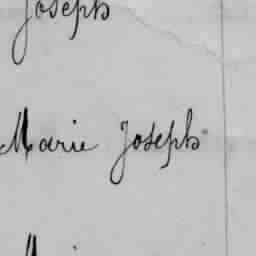 Joseph
Marie Joseph